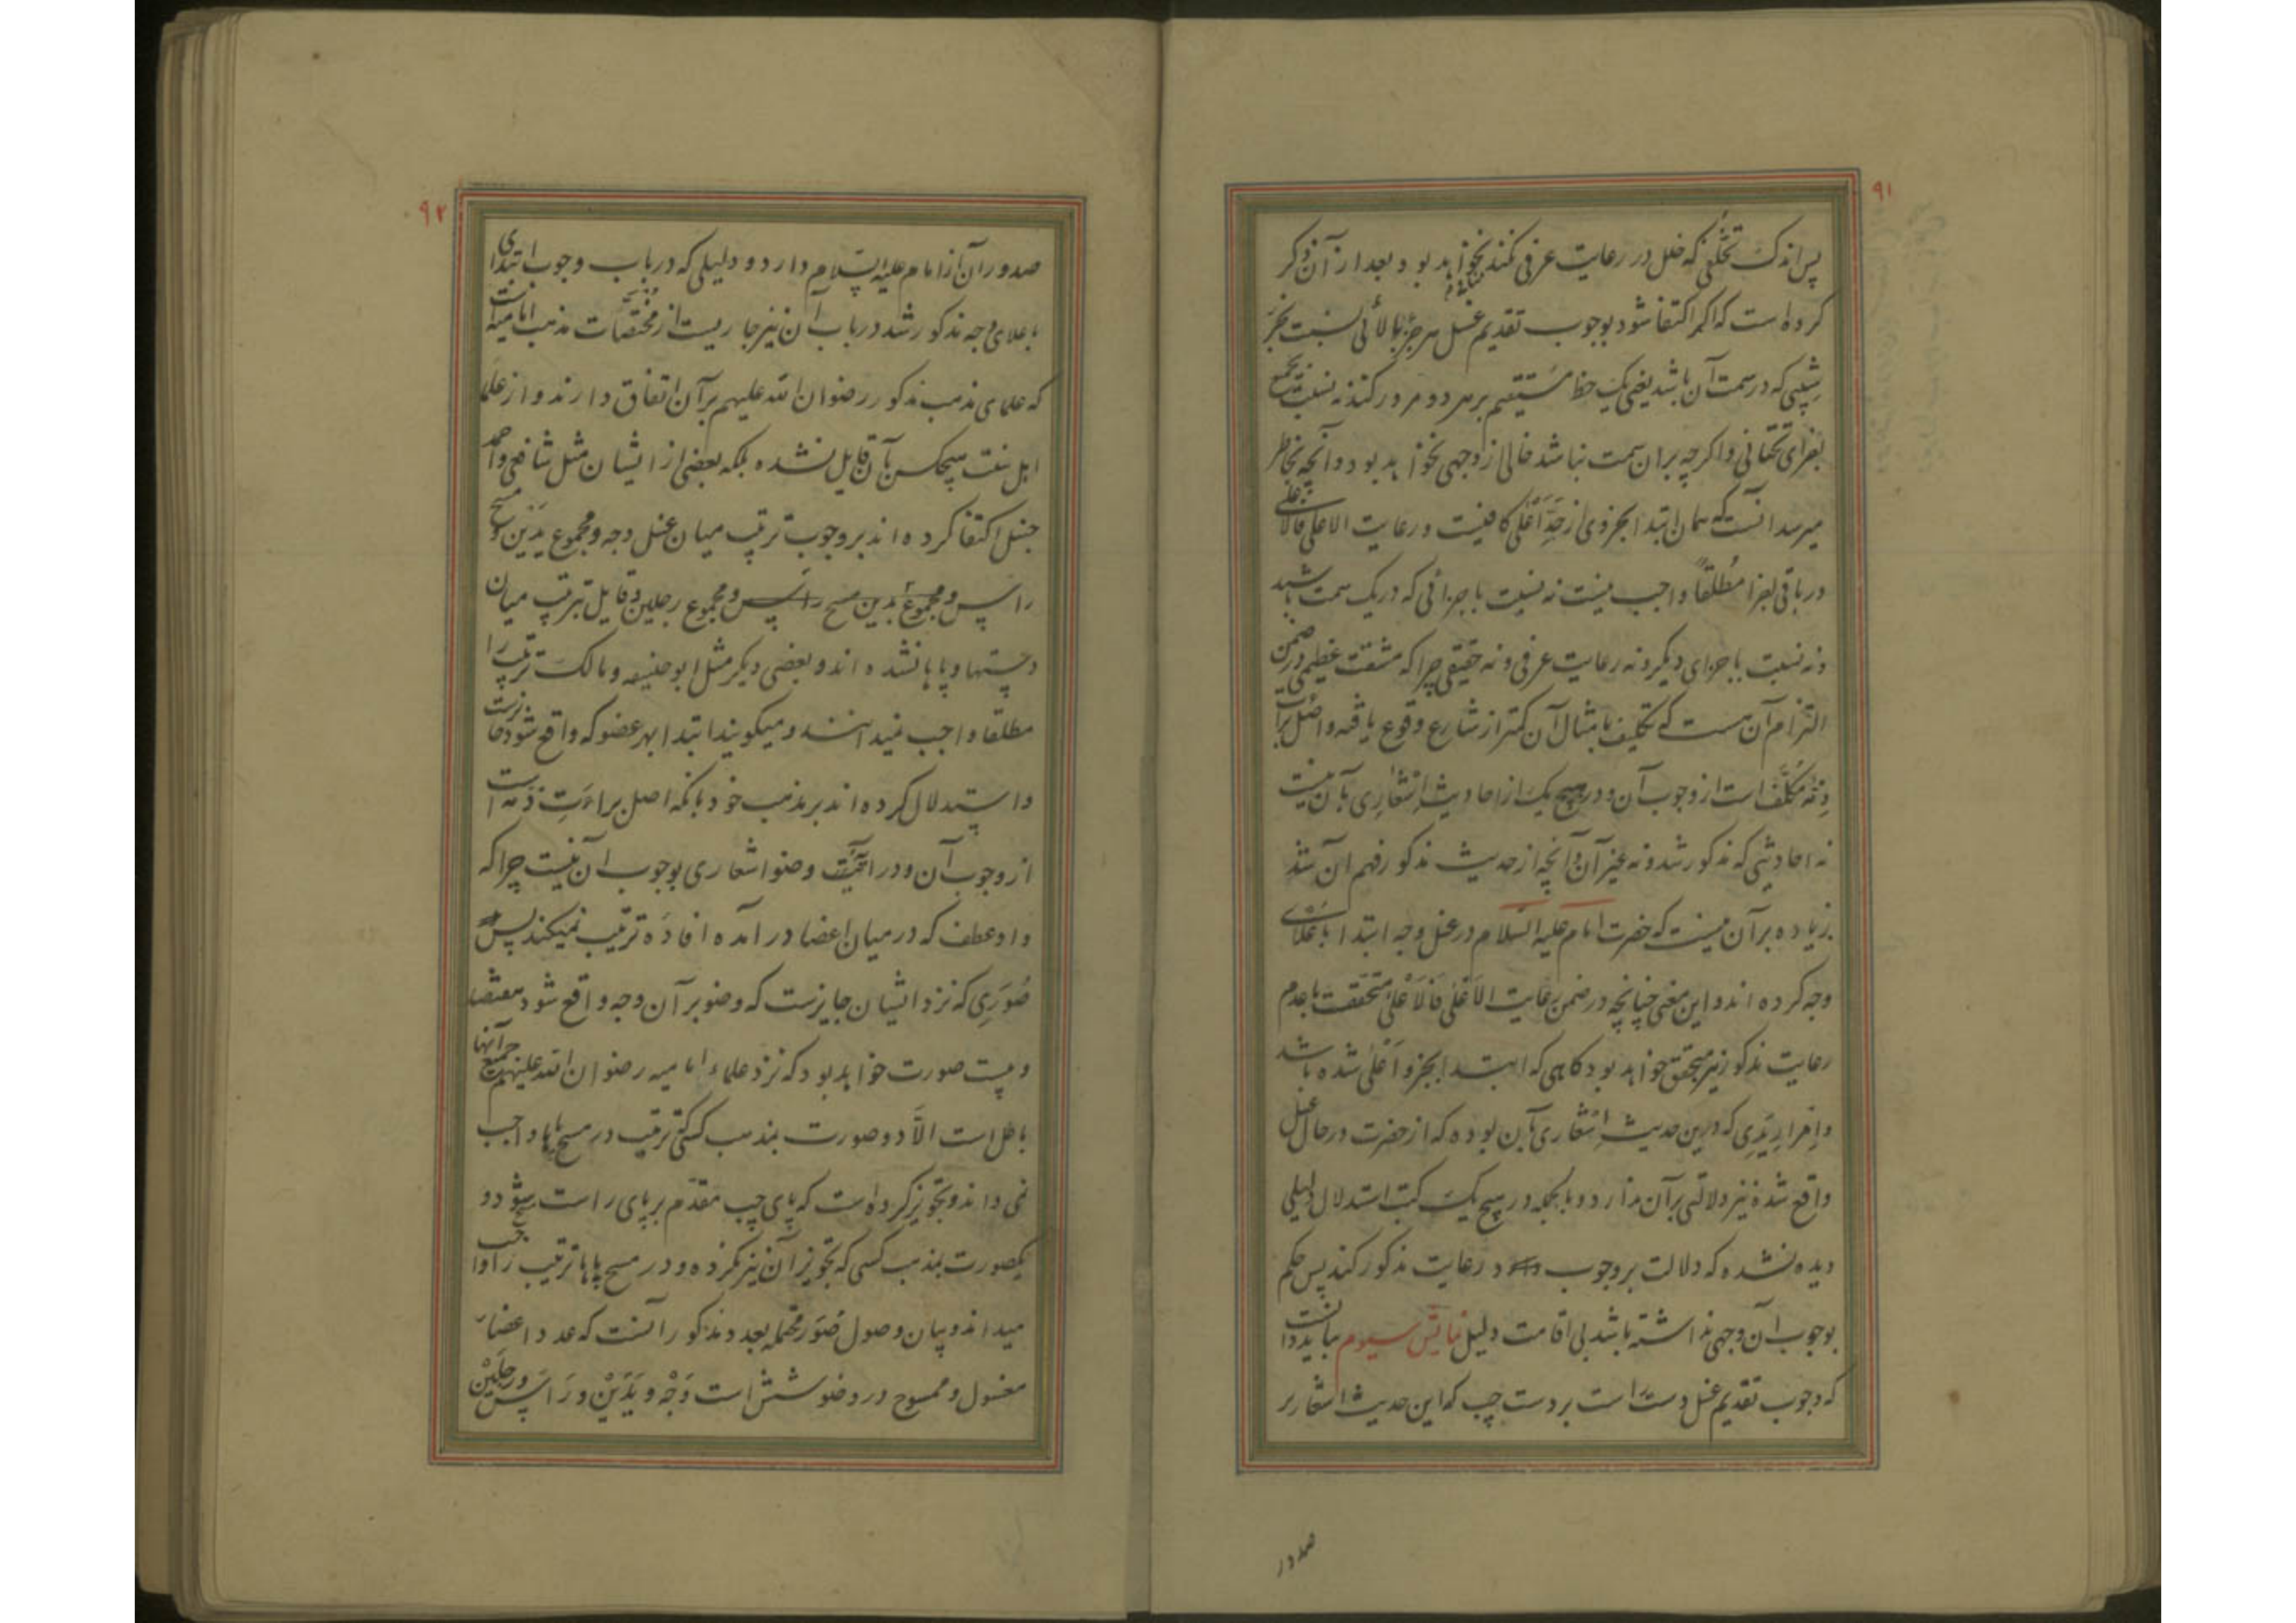 ۹۱
پس اندک تخلفی که خلل در رعایت عرفی نکند نخواهد بود و بعد از آن ذکر
کرده است که اگر اکتفا شود بوجوب تقدیم غسل هر جزء بالائی نسبت بجزء
شیبی که در سمت آن باشد یعنی یک خط مستقیم بر هر دو مرور کند نه نسبت بجمیع
اجزای تحتانی و اگرچه بر آن سمت نباشد خالی از وجهی نخواهد بود و آنچه بخاطر
میرسد آنست که همان ابتدا بجزوی از حد اعلی کافیست و رعایت الاعلی فالاعلی
در باقی اجزا مطلقاً واجب نیست نه نسبت باجزائی که در یک سمت باشد
و نه نسبت باجزای دیگر و نه رعایت عرفی و نه حقیقی چرا که مشقت عظیمی در ضمن
التزام آن هست که تکلیف بامثال آن کمتر از شارع وقوع یافته و اصل برائت
ذمّه مکلّف است از وجوب آن و در هیچ یک از احادیث اِشعاری بآن نیست
نه احادیثی که مذکور شد و نه غیر آن و آنچه از حدیث مذکور فهم آن شد
زیاده بر آن نیست که حضرت امام علیه السلام در غسل وجه ابتدا باَعلای
وجه کرده اند و این معنی چنانچه در ضمن رعایت الاَعلی فالاَعلی متحققست با عدم
رعایت مذکور نیز متحقق خواهد بود گاهی که ابتدا بجزو اَعلی شده باشد
و اِمرار یَدی که درین حدیث اِشعاری بآن بوده که از حضرت در حال غسل
واقع شده نیز دلالتی بر آن ندارد و بالجمله در هیچ یک کتب استدلال دلیلی
دیده نشده که دلالت بر وجوب رعایت مذکور کند پس حکم
بوجوب آن وجهی نداشته باشد بی اقامت دلیل سیوم بباید دانست
که وجوب تقدیم غسل دست راست بر دست چپ که این حدیث اشعار بر
صدور
۹۲
صدور آن از امام علیه السلام دارد و دلیلی که در باب وجوب ابتدای
باعلای وجه مذکور شد در باب آن نیز جاریست از مختصّات مذهب امامیه است
که علمای مذهب مذکور رضوان الله علیهم بر آن اتفاق دارند و از علما
اهل سنت هیچکس بآن قایل نشده بلکه بعضی از ایشان مثل شافعی و احمد
حنبل اکتفا کرده اند بر وجوب ترتیب میان غسل وجه و مجموع یَدَین و مسح
راس و مجموع یدین مسح راس و مجموع رجلین و قایل بترتیب میان
دستها و پاها نشده اند و بعضی دیگر مثل ابو حنیفه و مالک ترتیب را
مطلقا واجب نمیدانند و میگویند ابتدا بهر عضو که واقع شود جایزست
و استدلال کرده اند بر مذهب خود بآنکه اصل براءتِ ذمه است
از وجوب آن و در آیت وضو اشعاری بوجوب آن نیست چرا که
واو عطف که در میان اعضا در آمده افادَه ترتیب نمیکند پس
صُوَری که نزد ایشان جایزست که وضو بر آن وجه واقع شود هفتصد
و بیست صورت خواهد بود که نزد علماء امامیه رضوان الله علیهم جمیع آنها
باطل است الّا دو صورت بمذهب کسی که ترتیب در مسح پاها واجب
نمی داند و تجویز کرده است که پای چپ مقدّم بر پای راست شود و
یکصورت بمذهب کسی که تجویز آن نیز نکرده و در مسح پاها ترتیب را واجب
میداند و بیان وصول صُوَر محتمله بعدد مذکور آنست که عدد اعضاء
مغسول و ممسوح در وضو شش است وَجْه و یَدَیْن و رَاس و رجلَیْن